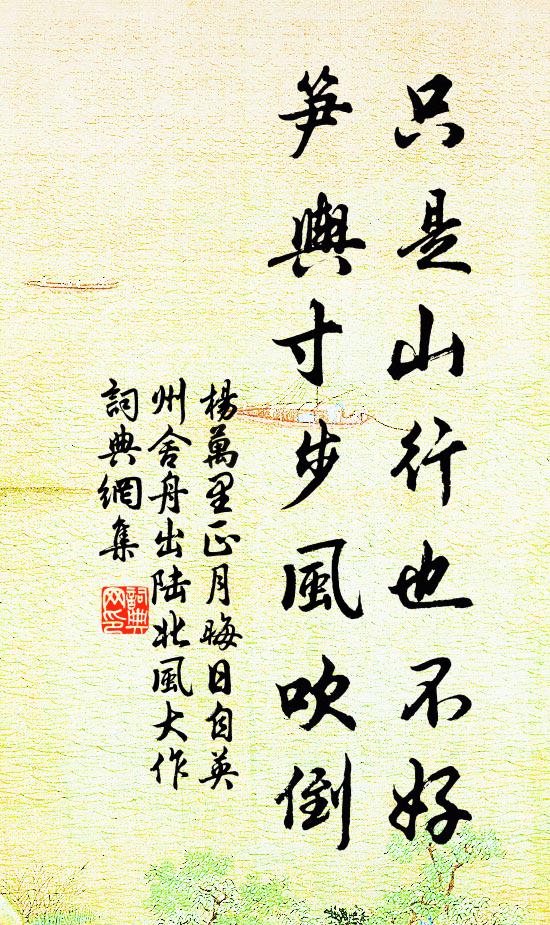 只是山行也不好
笋輿寸步風吹倒
楊萬里正月晦日自英
州舍舟出陆北風大作
詞典網集
詞典网印